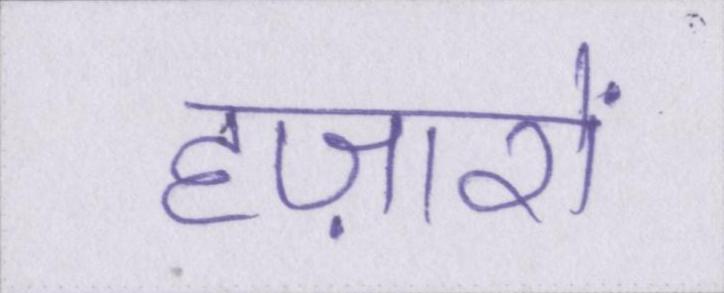 हज़ारों